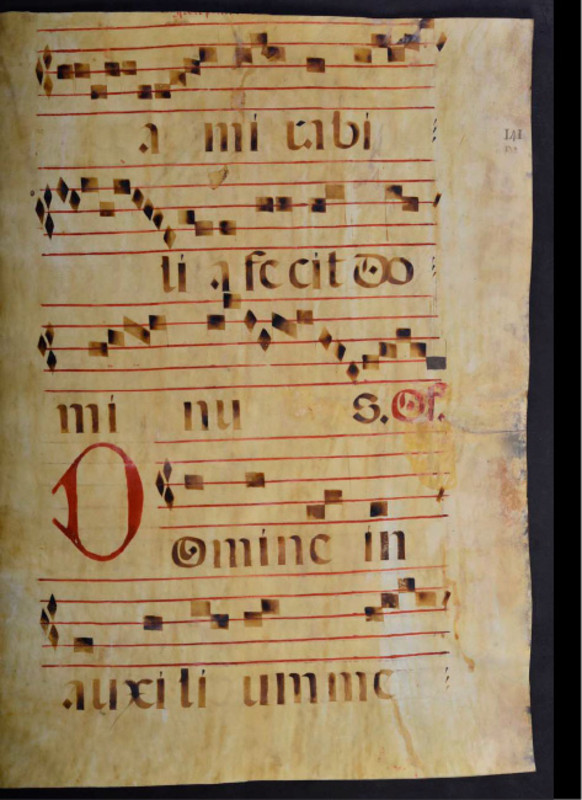 a mi rabi
li a fe cit Do
mi nu s. Of.
D omine in
auxi li um me
141